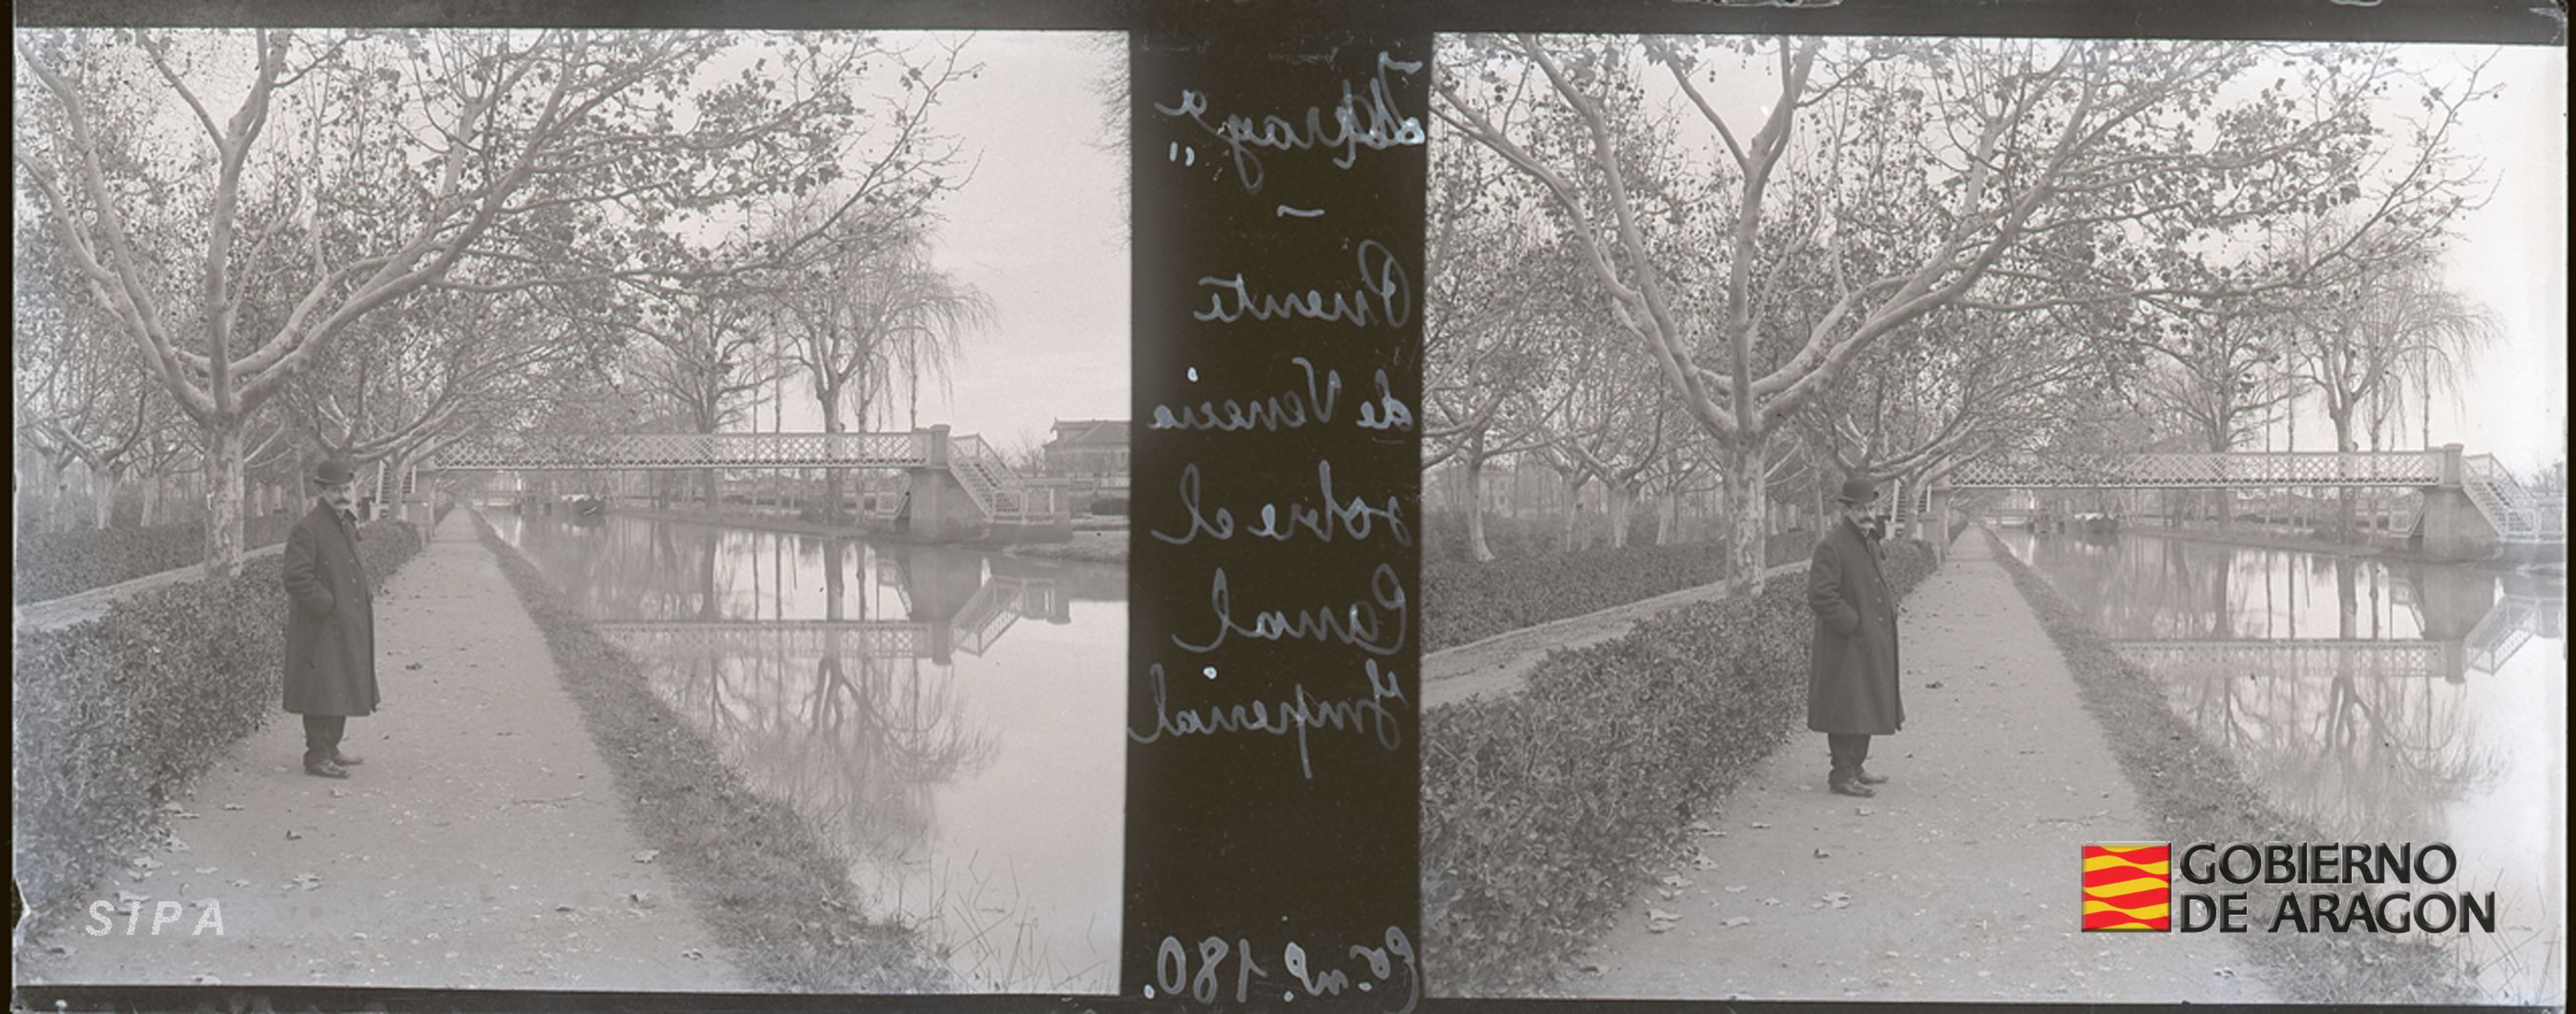 Puente
de Venecia
sobre el
Canal
Imperial
180.
SIPA
GOBIERNO
DE ARAGON